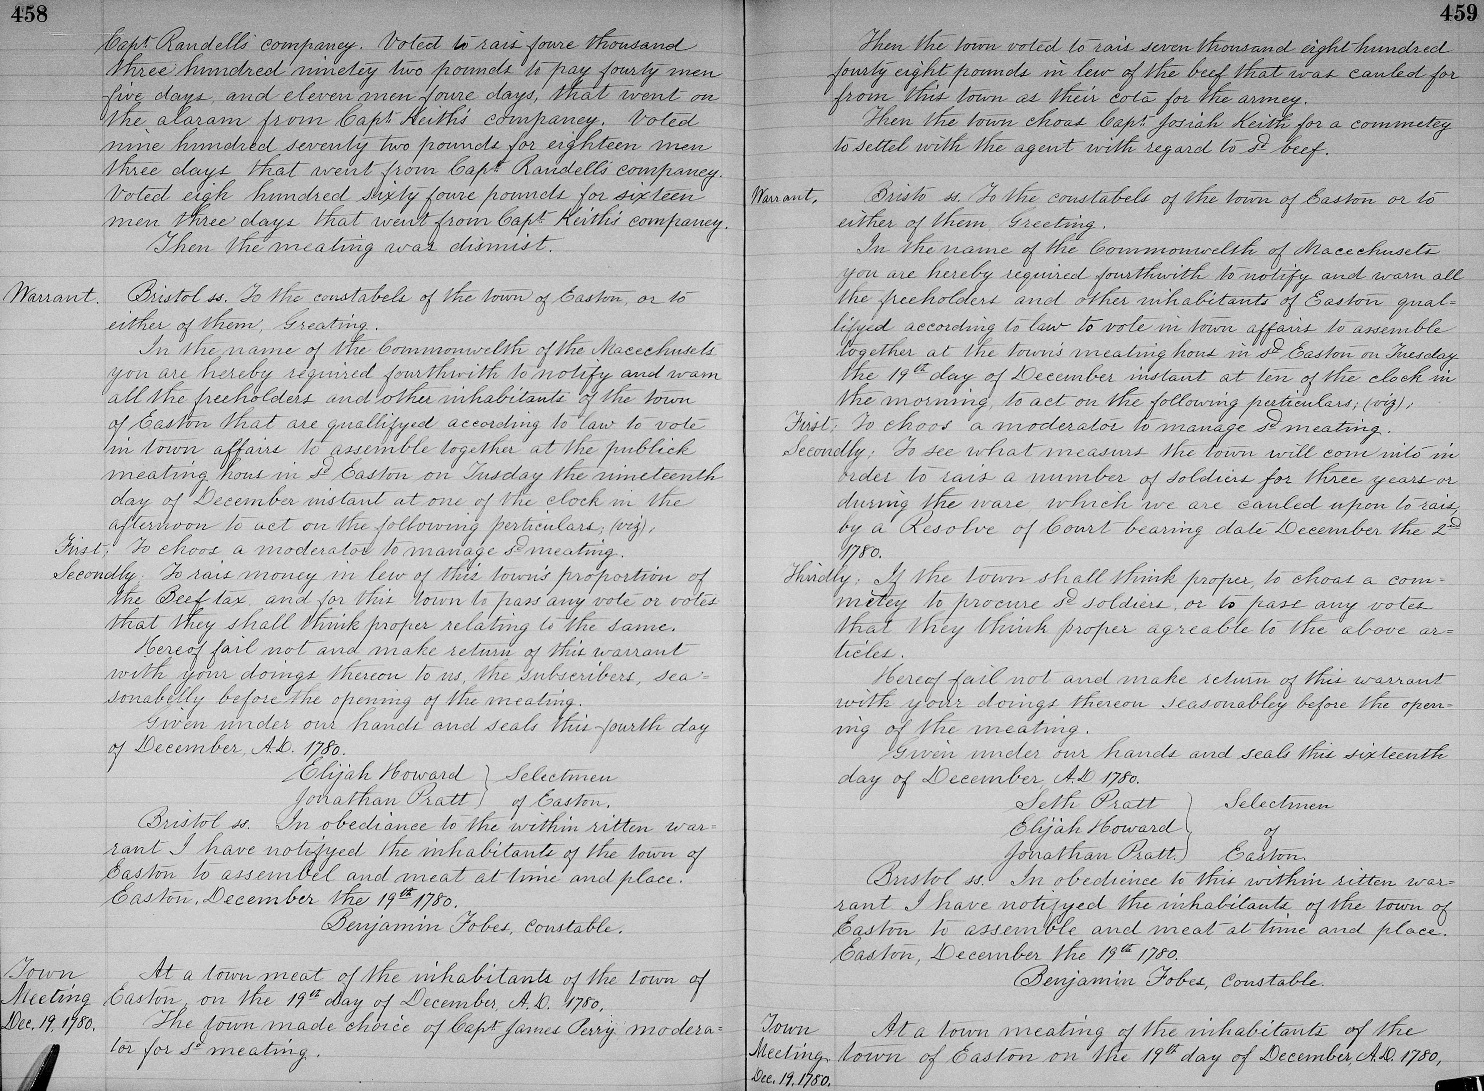 458
Capt. Randell's compancy. Voted to rais foure thousand
three hundred ninetey two pounds to pay fourty men
five days, and eleven men foure days, that went on
the alaram from Capt. Keith's compancy. Voted
nine hundred seventy two pounds for eighteen men
three days that went from Capt. Randell's compancy.
Voted eigh hundred sixty foure pounds for sixteen
men three days that went from Capt. Keith's compancy.
Then the meating was dismist.
Warrant. Bristol ss. To the constabels of the town of Easton, or to
either of them, Greating.
In the name of the Commonwelth of the Macechusets
you are hereby required fourthwith to notify and warn
all the freeholders and other inhabitants of the town
of Easton that are quallifyed according to law to vote
in town affairs to assemble together at the publick
meating hous in sd Easton on Tusday the nineteenth
day of December instant at one of the clock in the
afternoon to act on the following perticulars; (viz),
First; To choos a moderator to manage sd meating.
Secondly; To rais money in lew of this town's proportion of
the Beef tax, and for this town to pass any vote or votes
that they shall think proper relating to the same.
Hereof fail not and make return of this warrant
with your doings thereon to us, the subscribers, sea=
sonabelly before the opening of the meating.
Given under our hands and seals this fourth day
of December, A.D. 1780.
Elijah Howard } Selectmen
Jonathan Pratt } of Easton.
Bristol ss. In obediance to the within ritten war=
rant I have notifyed the inhabitants of the town of
Easton to assembel and meat at time and place.
Easton, December the 19th 1780.
Benjamin Fobes, constable.
Town Meeting Dec. 19, 1780.
At a town meat of the inhabitants of the town of
Easton, on the 19th day of December, A.D. 1780,
The town made choice of Capt James Perry modera=
tor for sd meating.
459
Then the town voted to rais seven thousand eight hundred
fourty eight pounds in lew of the beef that was cauled for
from this town as their cota for the armey.
Then the town choas Capt. Josiah Keith for a commetey
to settel with the agent with regard to sd beef.
Warrant. Bristo ss. To the constabels of the town of Easton or to
either of them, Greeting.
In the name of the Commonwelsh of Macechusets
you are hereby required fourthwith to notify and warn all
the freeholders and other inhabitants of Easton qual=
lifyed according to law to vote in town affairs to assemble
together at the town's meating hous in sd Easton on Tuesday
the 19th day of December instant at ten of the clock in
the morning, to act on the following perticulars; (viz),
First; To choos a moderator to manage sd meating.
Secondly; To see what measurs the town will com into in
order to rais a number of soldiers for three years or
during the ware, which we are cauled upon to rais,
by a Resolve of Court bearing date December the 2nd
1780.
Thirdly; If the town shall think proper, to choas a com=
metey to procure sd soldiers, or to pass any votes
that they think proper agreable to the above ar=
ticles.
Hereof fail not and make return of this warrant
with your doings thereon seasonabley before the open=
ing of the meating.
Given under our hands and seals this sixteenth
day of December, A.D. 1780.
Seth Pratt } Selectmen
Elijah Howard } of
Jonathan Pratt. } Easton.
Bristol ss. In obedience to this within ritten war=
rant I have notifyed the inhabitants of the town of
Easton to assemble and meat at time and place.
Easton, December the 19th 1780.
Benjamin Fobes, constable.
Town Meeting, Dec. 19, 1780.
At a town meating of the inhabitants of the
town of Easton on the 19th day of December, A.D. 1780,